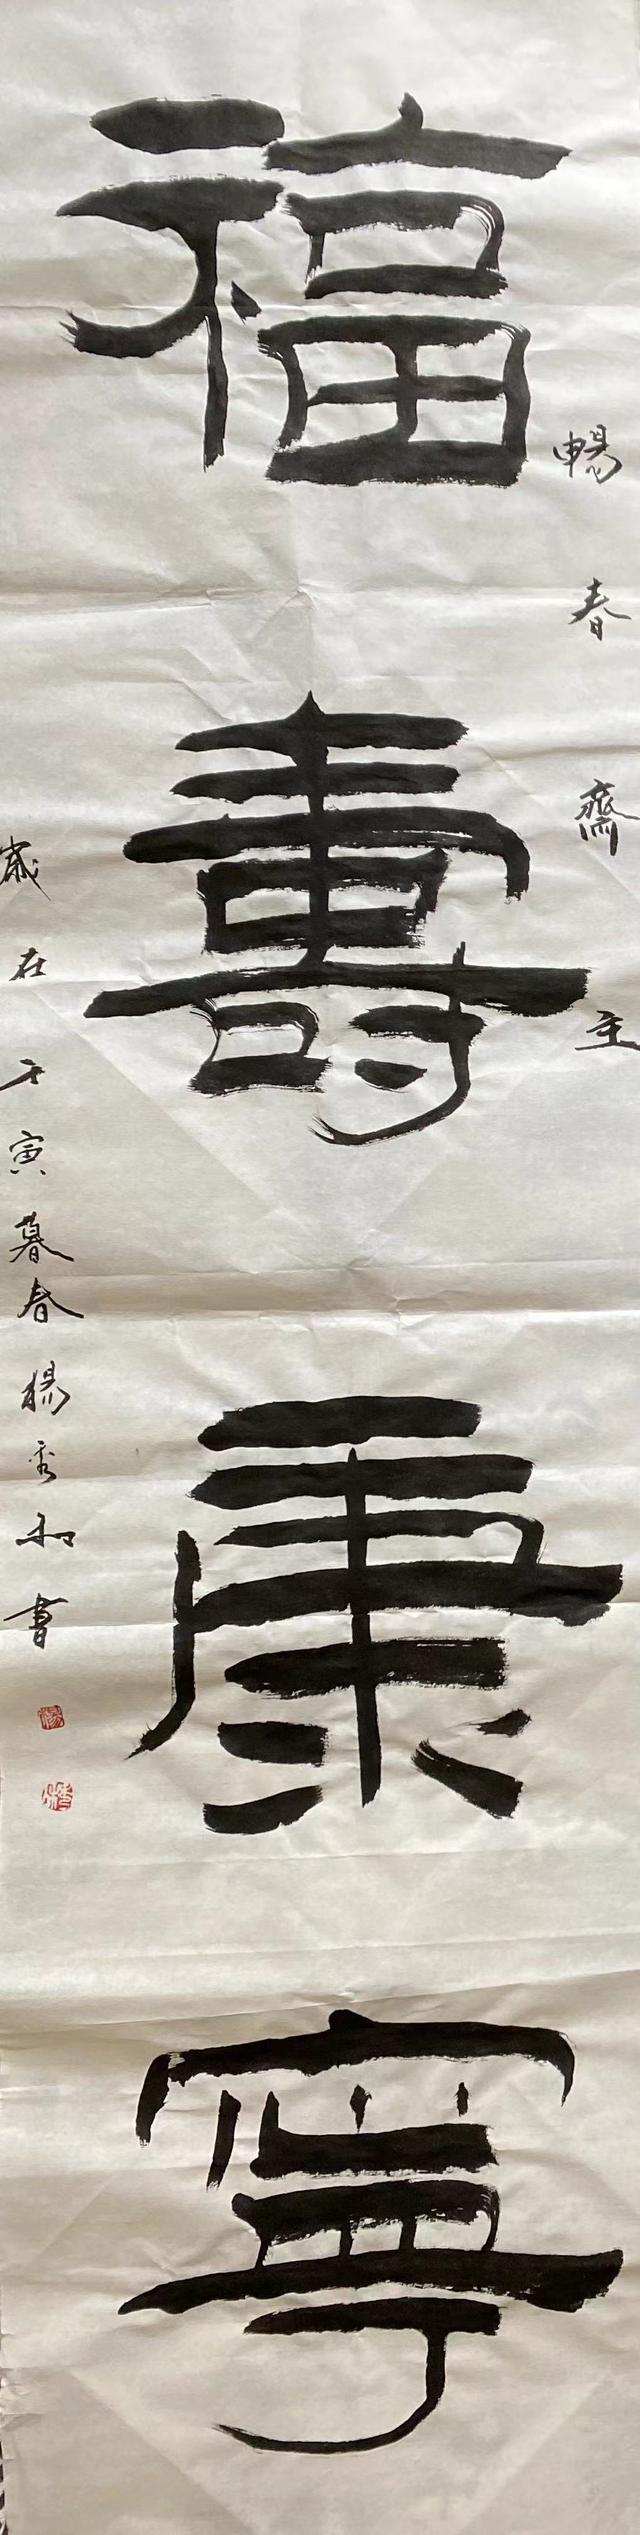 暢春齋主
福壽康寧
歲在壬寅暮春楊秀和書